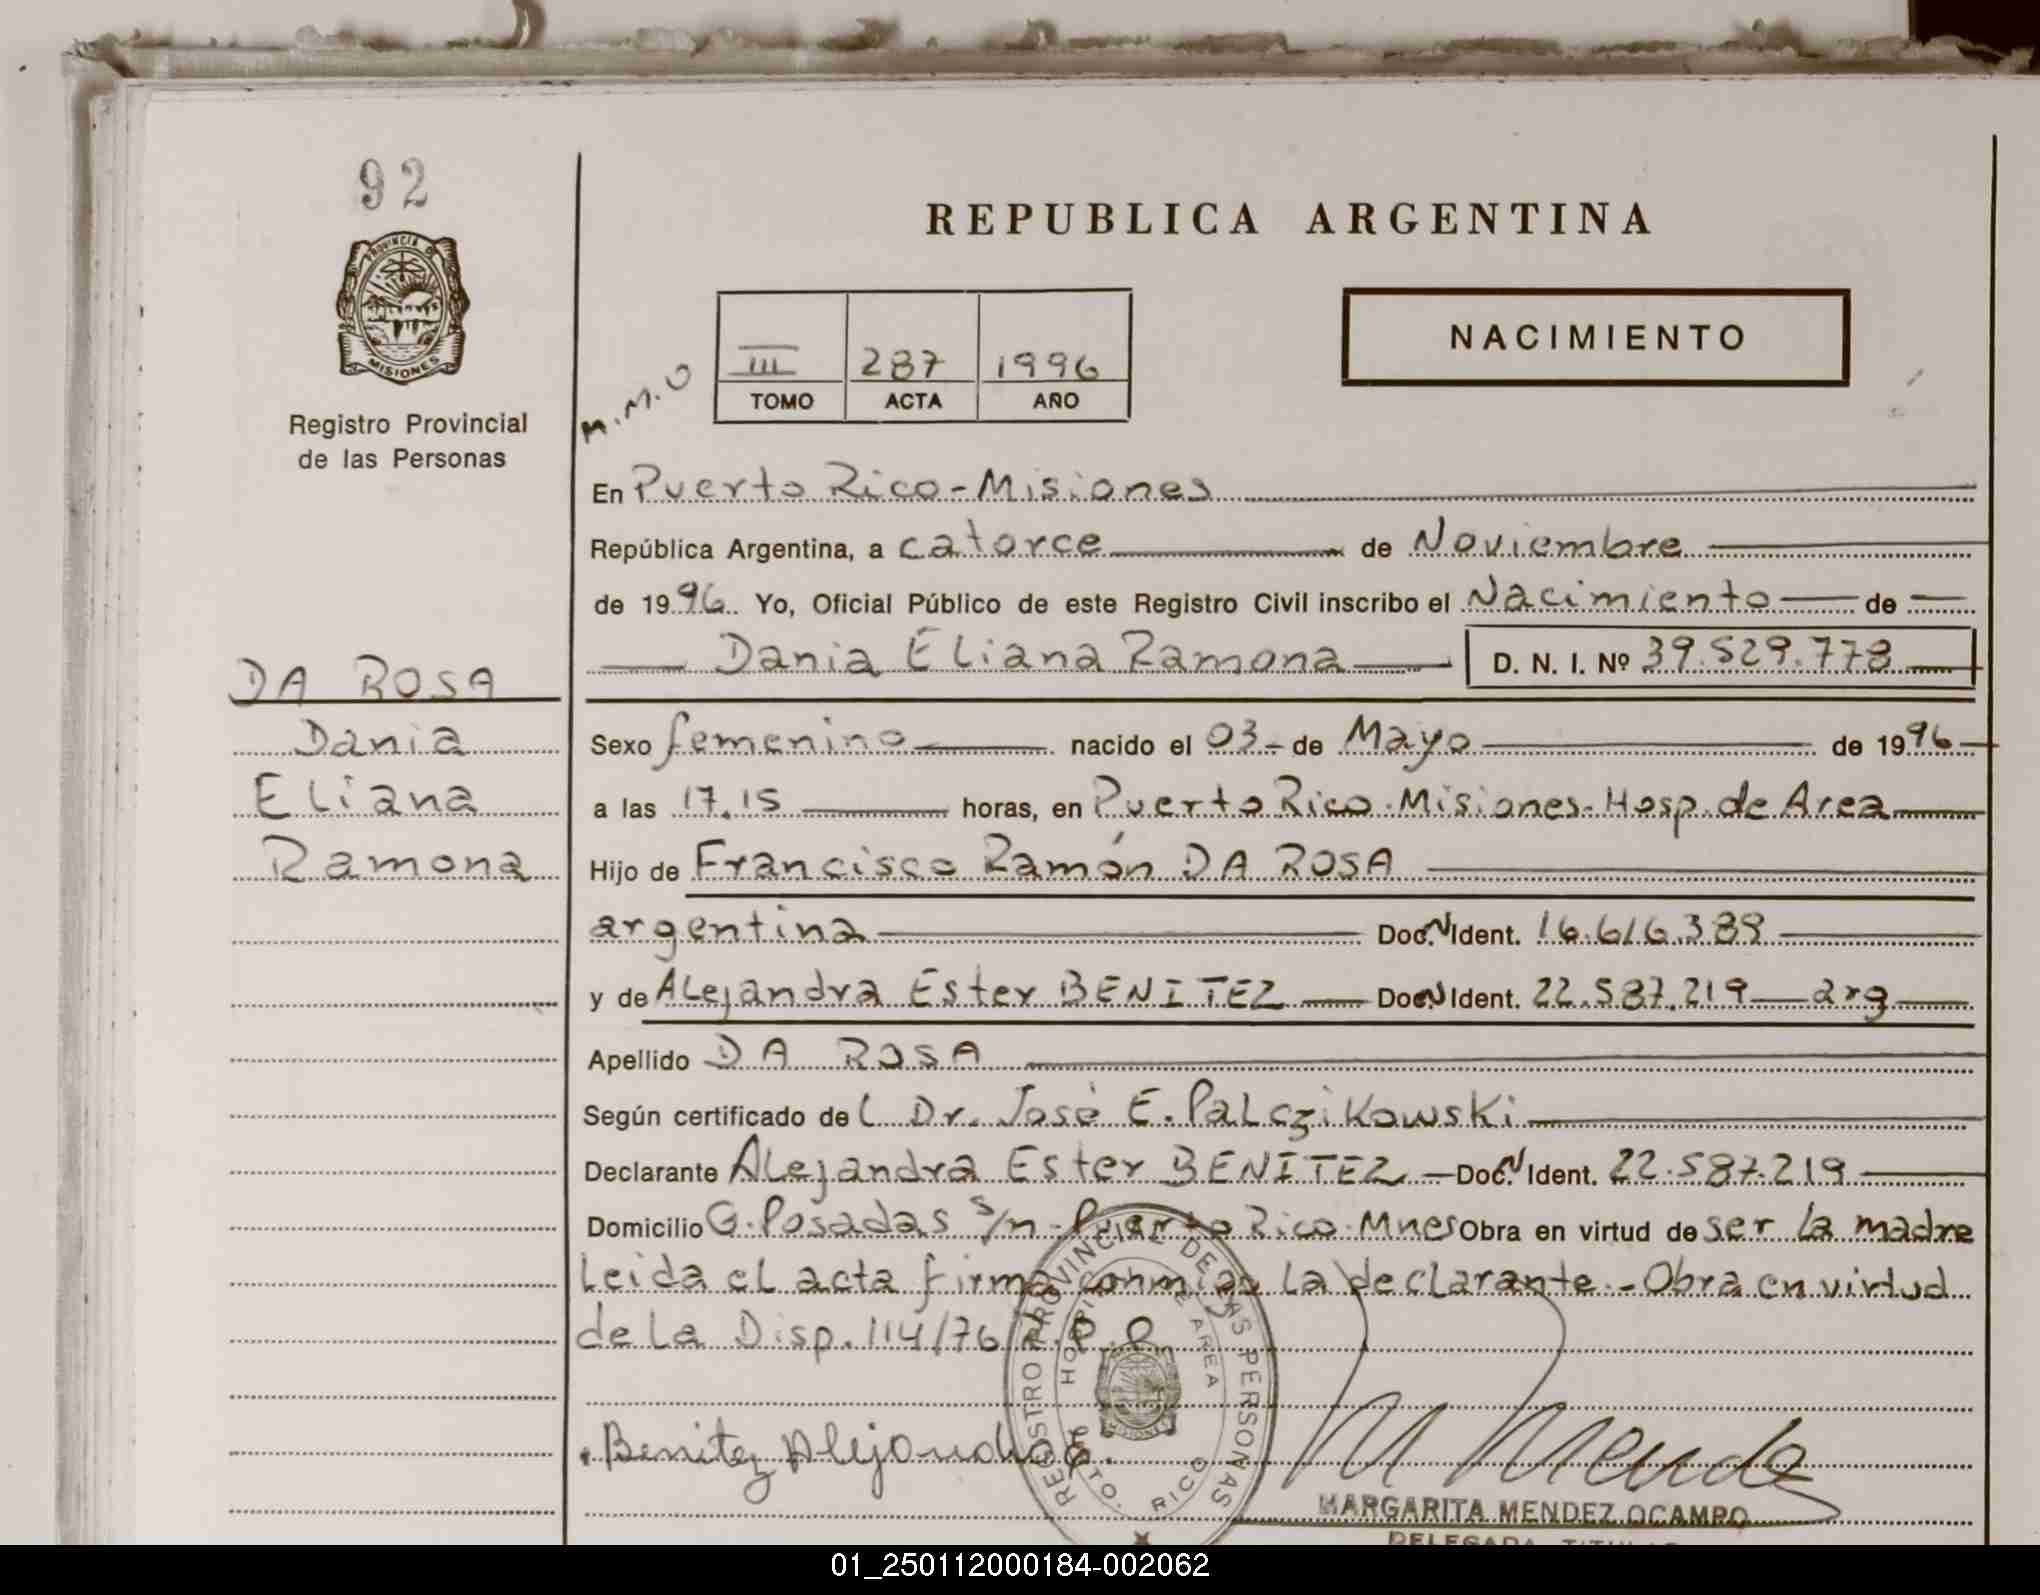 92
PROVINCIA DE
MISIONES
Registro Provincial
de las Personas
DA ROSA
Dania
Eliana
Ramona
REPUBLICA ARGENTINA
NACIMIENTO
M.M.O
III 287 1996
TOMO ACTA AÑO
En Puerto Rico-Misiones
República Argentina, a catorce de Noviembre
de 1996. Yo, Oficial Público de este Registro Civil inscribo el Nacimiento de
Dania Eliana Ramona D. N. I. Nº 39.529.778
Sexo femenino nacido el 03- de Mayo de 1996
a las 17.15 horas, en Puerto Rico.Misiones-Hosp.de Area
Hijo de Francisco Ramón DA ROSA
argentina Doc.N Ident. 16.616.389
y de Alejandra Ester BENITEZ Doc.N Ident. 22.587.219 arg
Apellido DA ROSA
Según certificado del Dr. José E. Palczikowski
Declarante Alejandra Ester BENITEZ Doc.N Ident. 22.587.219
Domicilio G.Posadas s/n-Puerto Rico.Mnes Obra en virtud de ser la madre
Leida el acta firma conmigo la declarante.-Obra en virtud
de la Disp.114/76
REGISTRO PROVINCIAL DE LAS PERSONAS
HOSPITAL DE AREA
PTO. RICO
Benitez Alejandra E.
M Mendez
MARGARITA MENDEZ OCAMPO
DELEGADA TITULAR
01_250112000184-002062